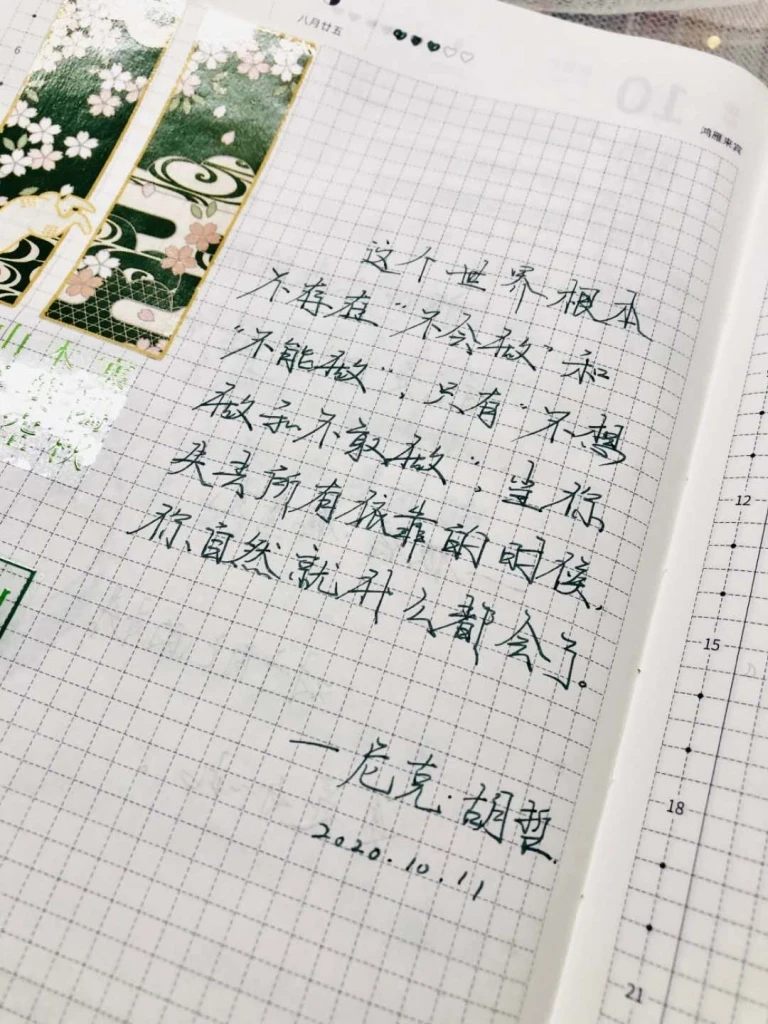 八月廿五
10
鸿雁来宾
6
这个世界根本
不存在“不会做”和
“不能做”，只有“不想
做和不敢做”；当你
失去所有依靠的时候，
你自然就什么都会了。
一尼克·胡哲
2020.10.11
12
15
18
21